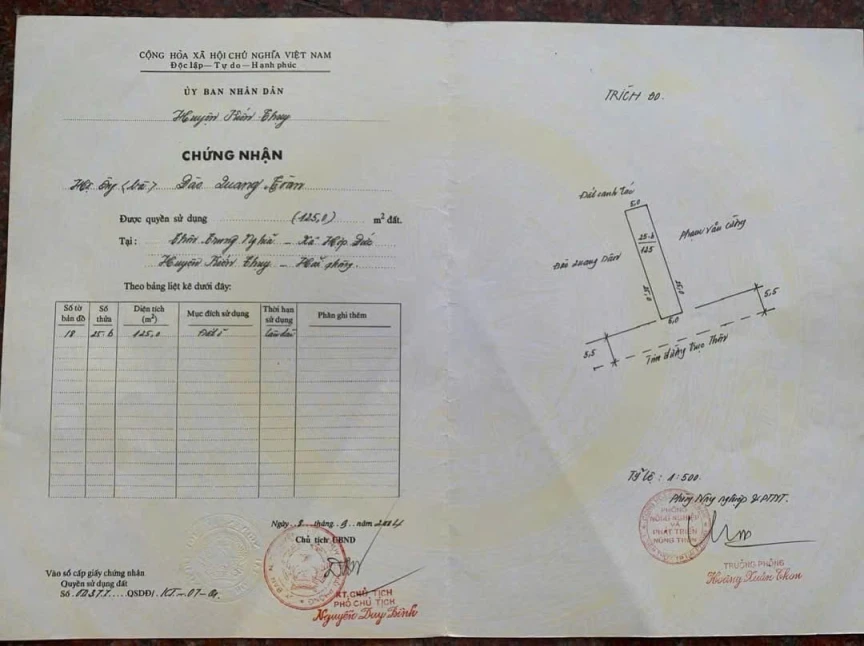 CỘNG HÒA XÃ HỘI CHỦ NGHĨA VIỆT NAM
Độc lập — Tự do — Hạnh phúc
ỦY BAN NHÂN DÂN
Huyện Kiến Thụy
CHỨNG NHẬN
Hộ Ông (bà) Đào Quang
Được quyền sử dụng (125,0) m² đất.
Tại: Thôn Trung Nghĩa - Xã Hợp Đức
Huyện Kiến Thụy - Hải Phòng
Theo bảng liệt kê dưới đây:
Số tờ bản đồ Số thửa Diện tích (m²) Mục đích sử dụng Thời hạn sử dụng Phần ghi thêm
18 25-b 125,0 Đất ở Lâu dài
Ngày 8 tháng 9 năm 2004
Chủ tịch UBND
KT.CHỦ TỊCH
PHÓ CHỦ TỊCH
Nguyễn Duy Bình
Vào sổ cấp giấy chứng nhận
Quyền sử dụng đất
Số QSDĐ/
TRÍCH ĐO.
Đất canh tác
5,0
25-b
125
Phạm Văn
Quang
25,0
25,0
5,0
5,5
5,5
Tim đường trục thôn
Tỷ lệ: 1:500.
Phòng Nông nghiệp & PTNT.
PHÒNG
NÔNG NGHIỆP
VÀ
PHÁT TRIỂN
NÔNG THÔN
TRƯỞNG PHÒNG
Hoàng Xuân